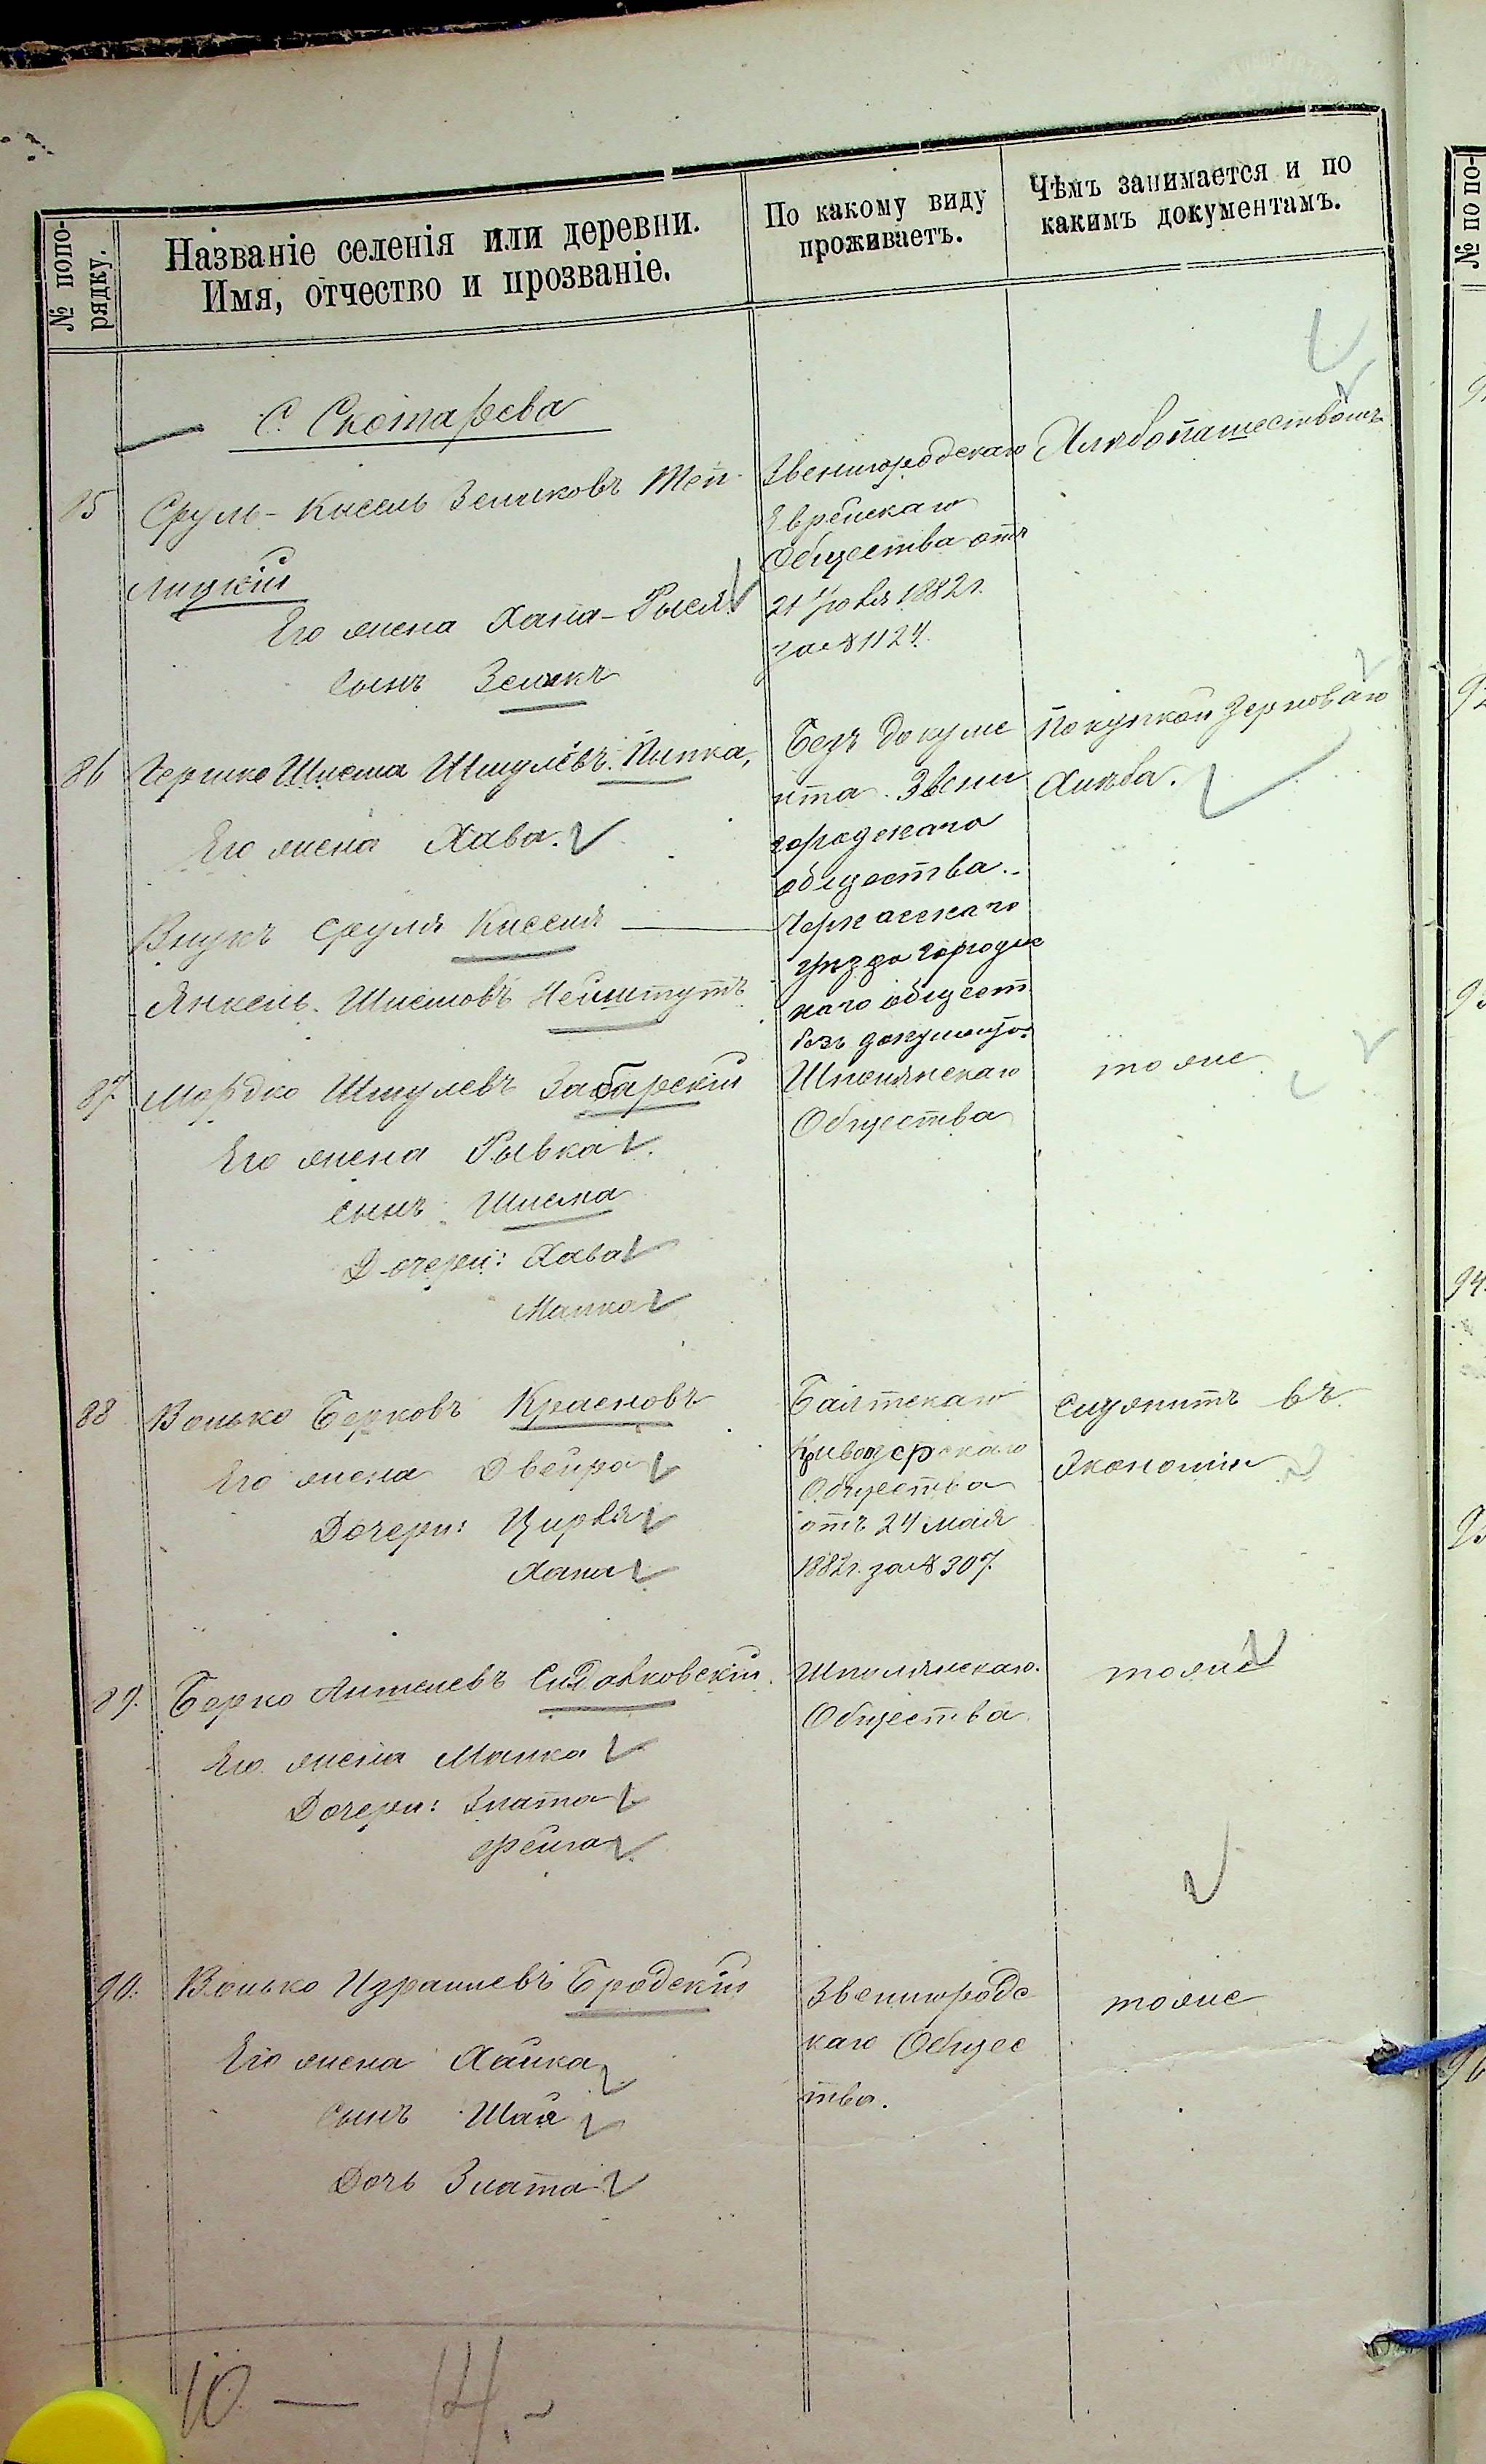 № попо-
рядку.
Названіе селенія или деревни.
Имя, отчество и прозваніе.
По какому виду
проживаетъ.
Чѣмъ занимается и по
какимъ документамъ.
№ по по-
С. Скотарева
85 Сруль-Кисель Зельковъ Теп-
лицкій
Его жена Хана-Рыся
сынъ Зелькъ
Звенигородскаго
Еврейскаго
Общества отъ
21 1882 г.
за № 1124.
Хлѣбопашествомъ
86 Гершко Шлема Шмулевъ Пипка,
Его жена Хава.
Внукъ Сруля Киселя
Янкель Шлемовъ
Безъ докуме
нта. Звени
городскаго
общества.
Черкасскаго
уѣзда Городис
каго общест
безъ документа.
Покупкой зерноваго
Хлѣба.
87 Мордко Шмулевъ Забарскій
Его жена Рывка
сынъ Шлема
Дочери: Хава
Малка
Шполянскаго
Общества
тоже
88 Волько Берковъ Красновъ
Его жена Двейра
Дочери: Цирля
Хана
Балтскаго
Кривоозерскаго
Общества
отъ 24 мая
1882 г. за № 307.
Служитъ въ
Экономіи
89. Берко Аншелевъ
Его жена Малка
Дочери: Злата
Фейга
Шполянскаго
Общества
тоже
90. Волько Израилевъ Бродскій
Его жена Хайка
сынъ Шая
Дочь Злата
Звенигородс
каго Общес
тва.
тоже
10 — 14.